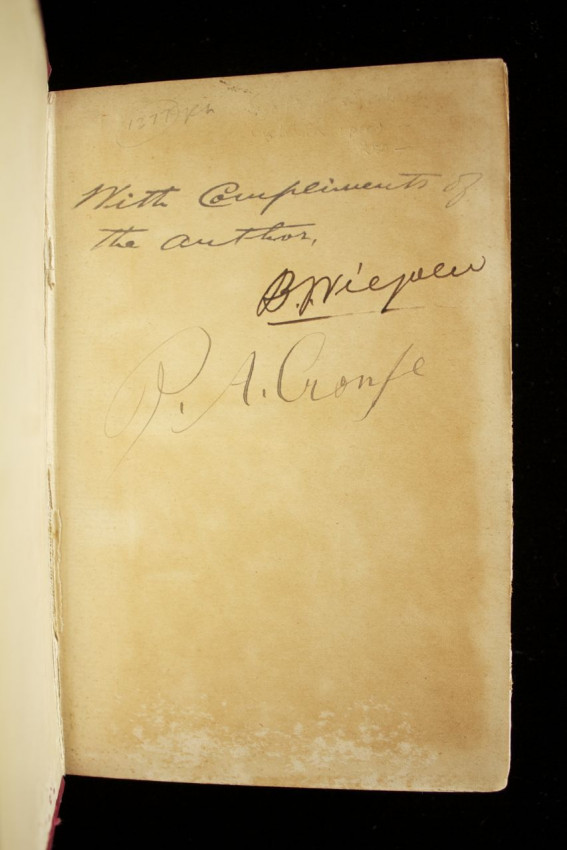 With Compliments of
the author,
B. Viljoen
P. A. Cronje